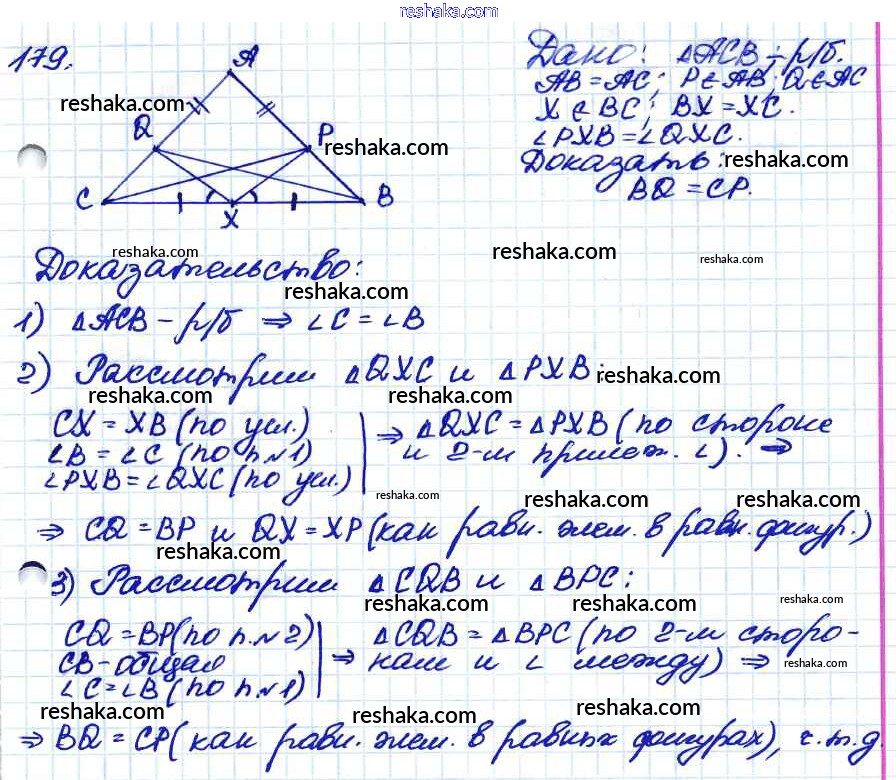 reshaka.com
179.
A
Q
P
C
X
B
reshaka.com
reshaka.com
Дано: △ACB – р/б.
AB = AC; P ∈ AB; Q ∈ AC
X ∈ BC; BX = XC.
∠PXB = ∠QXC.
Доказать: reshaka.com
BQ = CP.
reshaka.com reshaka.com reshaka.com
Доказательство:
reshaka.com
1) △ACB – р/б ⇒ ∠C = ∠B
2) Рассмотрим △QXC и △PXB: reshaka.com
reshaka.com reshaka.com
CX = XB (по усл.)
∠B = ∠C (по п.№1)
∠PXB = ∠QXC (по усл.)
⇒ △QXC = △PXB (по стороне
и 2-м прилеж. ∠). ⇒
reshaka.com reshaka.com reshaka.com
⇒ CQ = BP и QX = XP (как равн. элем. в равн. фигур.)
reshaka.com
3) Рассмотрим △CQB и △BPC:
reshaka.com reshaka.com reshaka.com
CQ = BP (по п.№2)
CB – общая
∠C = ∠B (по п.№1)
⇒ △CQB = △BPC (по 2-м сторо-
нам и ∠ между) ⇒ reshaka.com
reshaka.com reshaka.com reshaka.com
⇒ BQ = CP (как равн. элем. в равных фигурах), ч.т.д.
reshaka.com reshaka.com